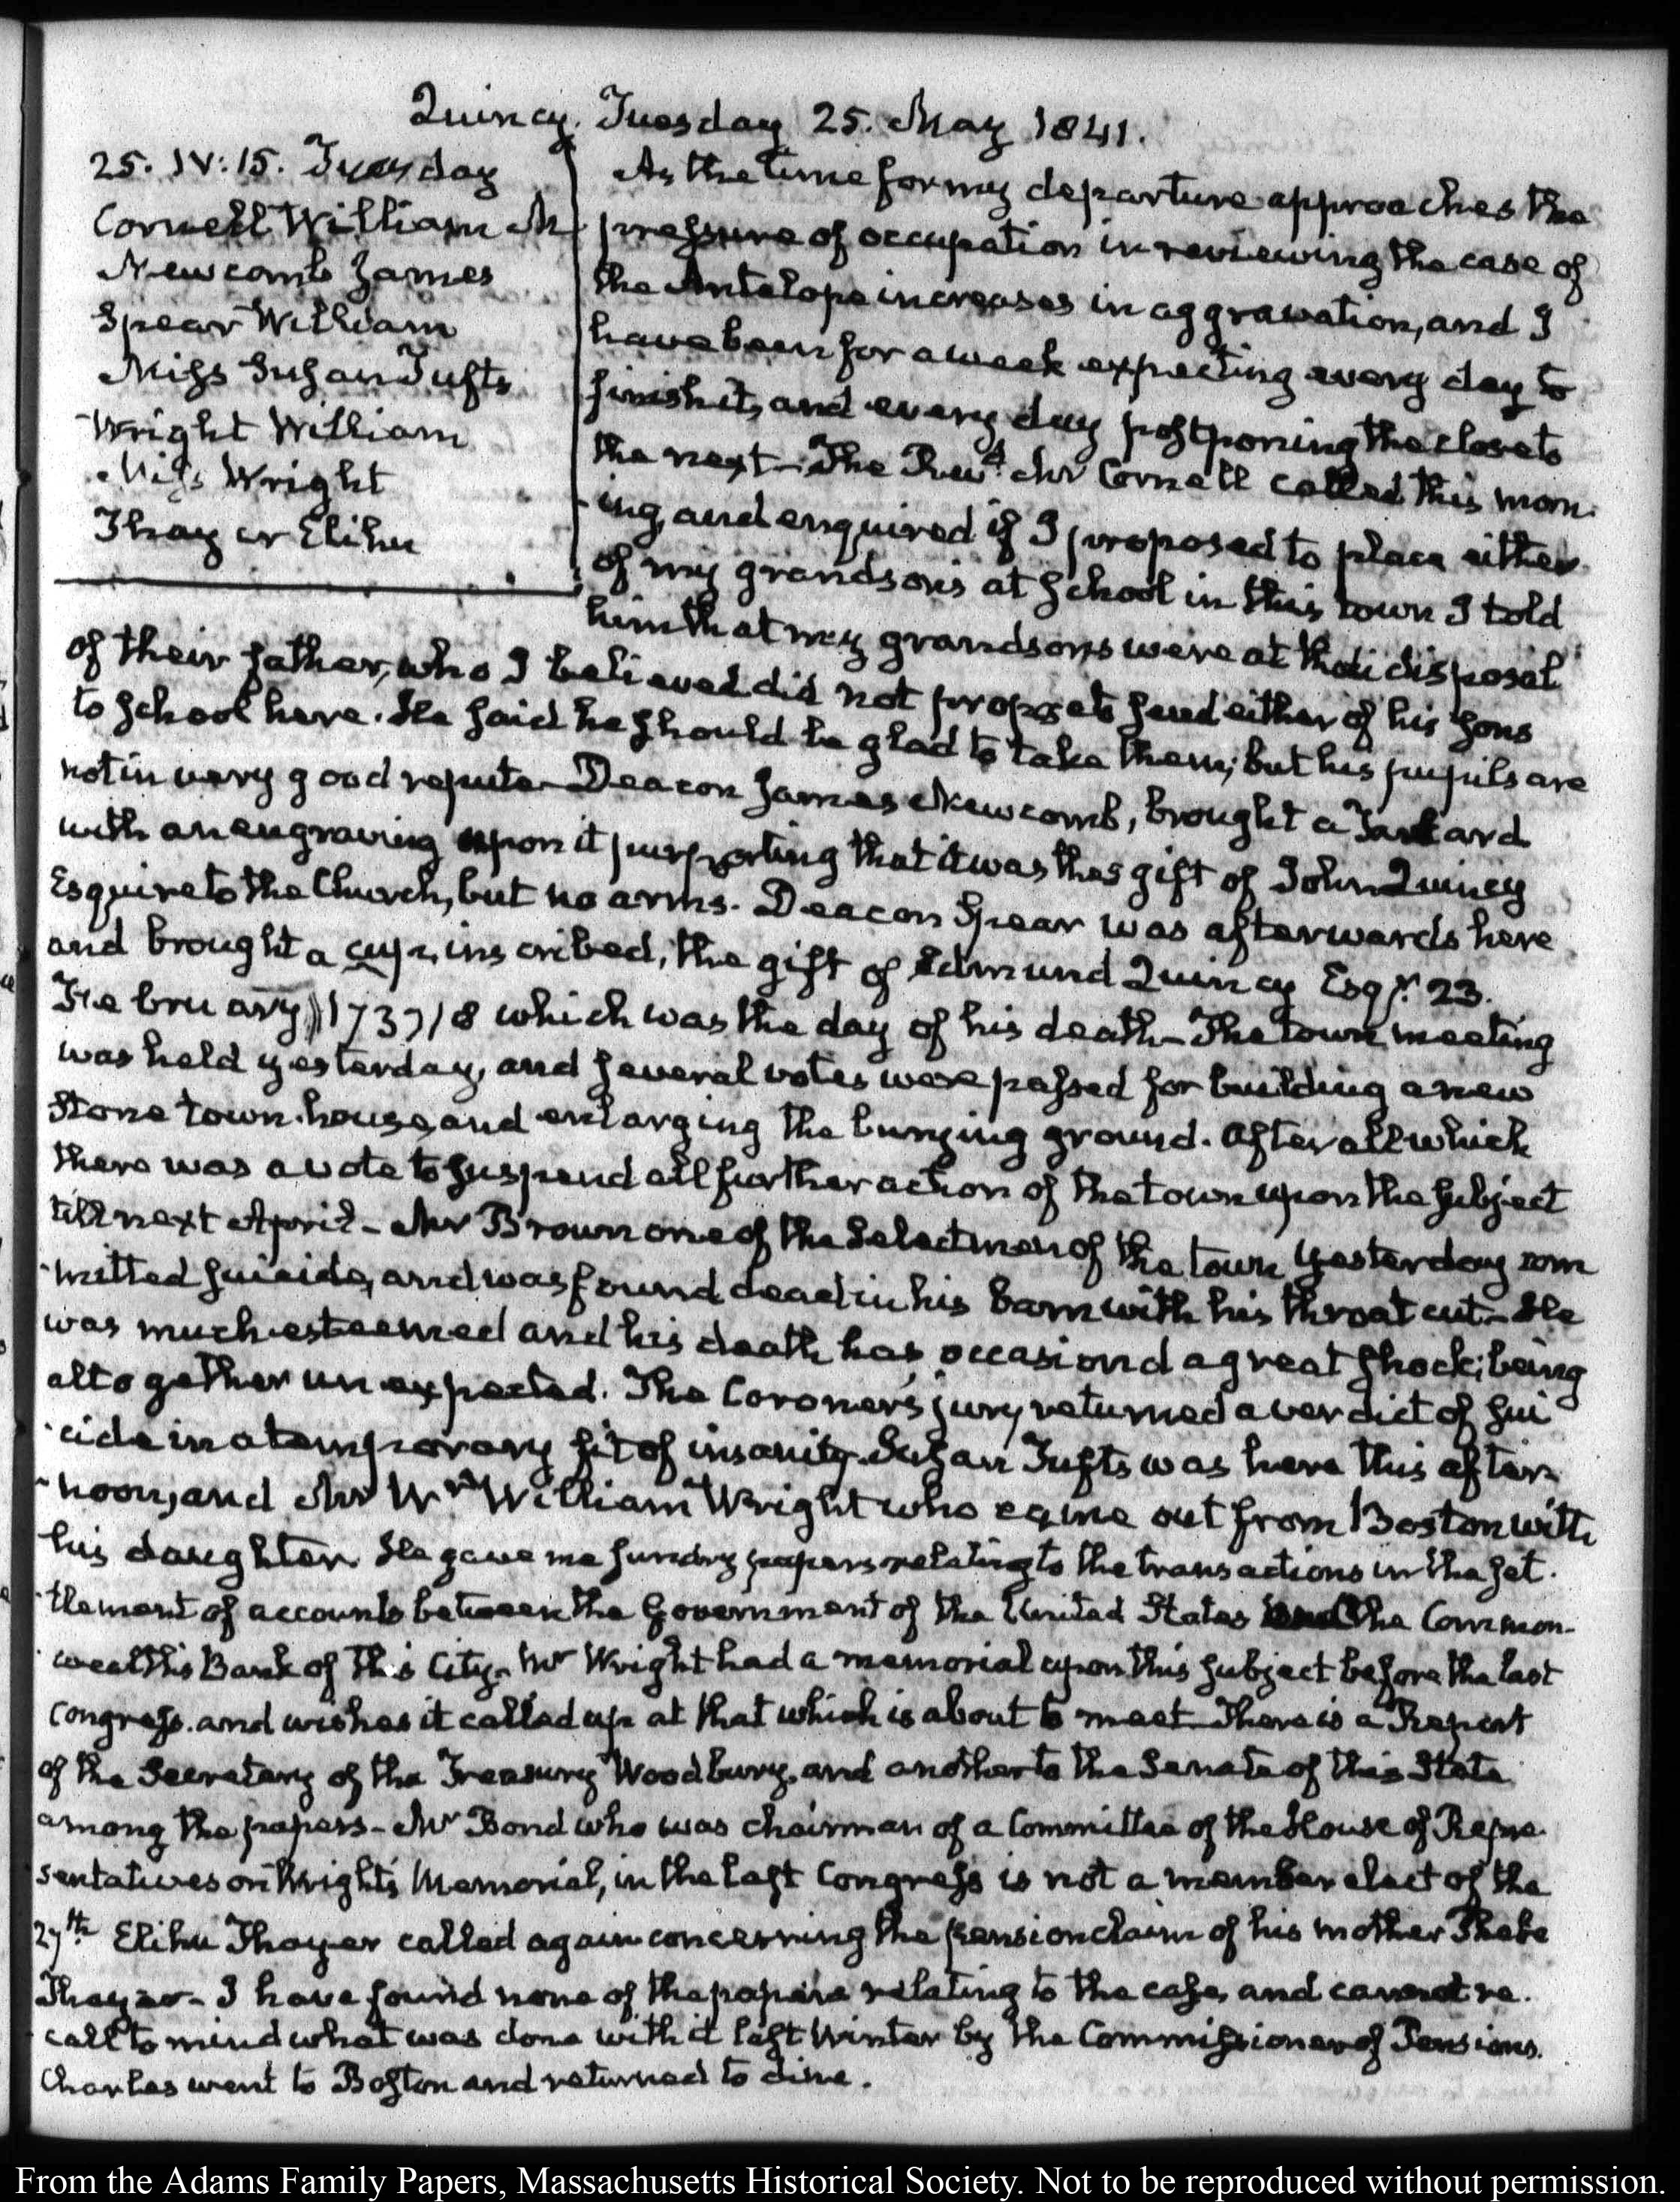 Quincy. Tuesday 25. May 1841.
25. IV:15. Tuesday
Cornell William M
Newcomb James
Spear William
Miss Susan Tufts
Wright William
Miss Wright
Thayer Elihu
As the time for my departure approaches the
pressure of occupation in reviewing the case of
the Antelope increases in aggravation, and I
have been for a week expecting every day to
finish it, and every day postponing the close to
the next. The Revd. Mr Cornell called this morn-
ing, and enquired if I proposed to place either
of my grandsons at School in this town I told
him that my grandsons were at the disposal
of their father, who I believed did not propose to send either of his Sons
to School here. He said he should be glad to take them; but his pupils are
not in very good repute- Deacon James Newcomb, brought a Tankard
with an engraving upon it purporting that it was the gift of John Quincy
Esquire to the Church, but no arms. Deacon Spear was afterwards here
and brought a cup, inscribed, the gift of Edmund Quincy Esqr. 23.
February 1737/8 which was the day of his death- The town meeting
was held yesterday, and several votes were passed for building a new
Stone town-house, and enlarging the burying ground. After all which
there was a vote to suspend all further action of the town upon the subject
till next April- Mr Brown one of the Selectmen of the town yesterday com
-mitted suicide, and was found dead in his barn with his throat cut- He
was much esteemed and his death has occasiond a great shock; being
altogether unexpected. The Coroner's jury returned a verdict of sui
-cide in a temporary fit of insanity. Susan Tufts was here this after
-noon, and Mr Wm William Wright who came out from Boston with
his daughter He gave me sundry papers relating to the transactions in the set-
tlement of accounts between the Government of the United States the Common-
-wealth's Bank of this City- Mr Wright had a memorial upon this subject before the last
Congress. and wishes it called up at that which is about to meet- There is a Report
of the Secretary of the Treasury Woodbury, and another to the Senate of this State
among the papers- Mr Bond who was chairman of a Committee of the House of Repre-
sentatives on Wright's Memorial, in the last Congress is not a member elect of the
27th. Elihu Thayer called again concerning the pension claim of his mother Phebe
Thayer- I have found none of the papers relating to the case, and cannot re-
call to mind what was done with it last Winter by the Commissioner of Pensions.
Charles went to Boston and returned to dine.
From the Adams Family Papers, Massachusetts Historical Society. Not to be reproduced without permission.